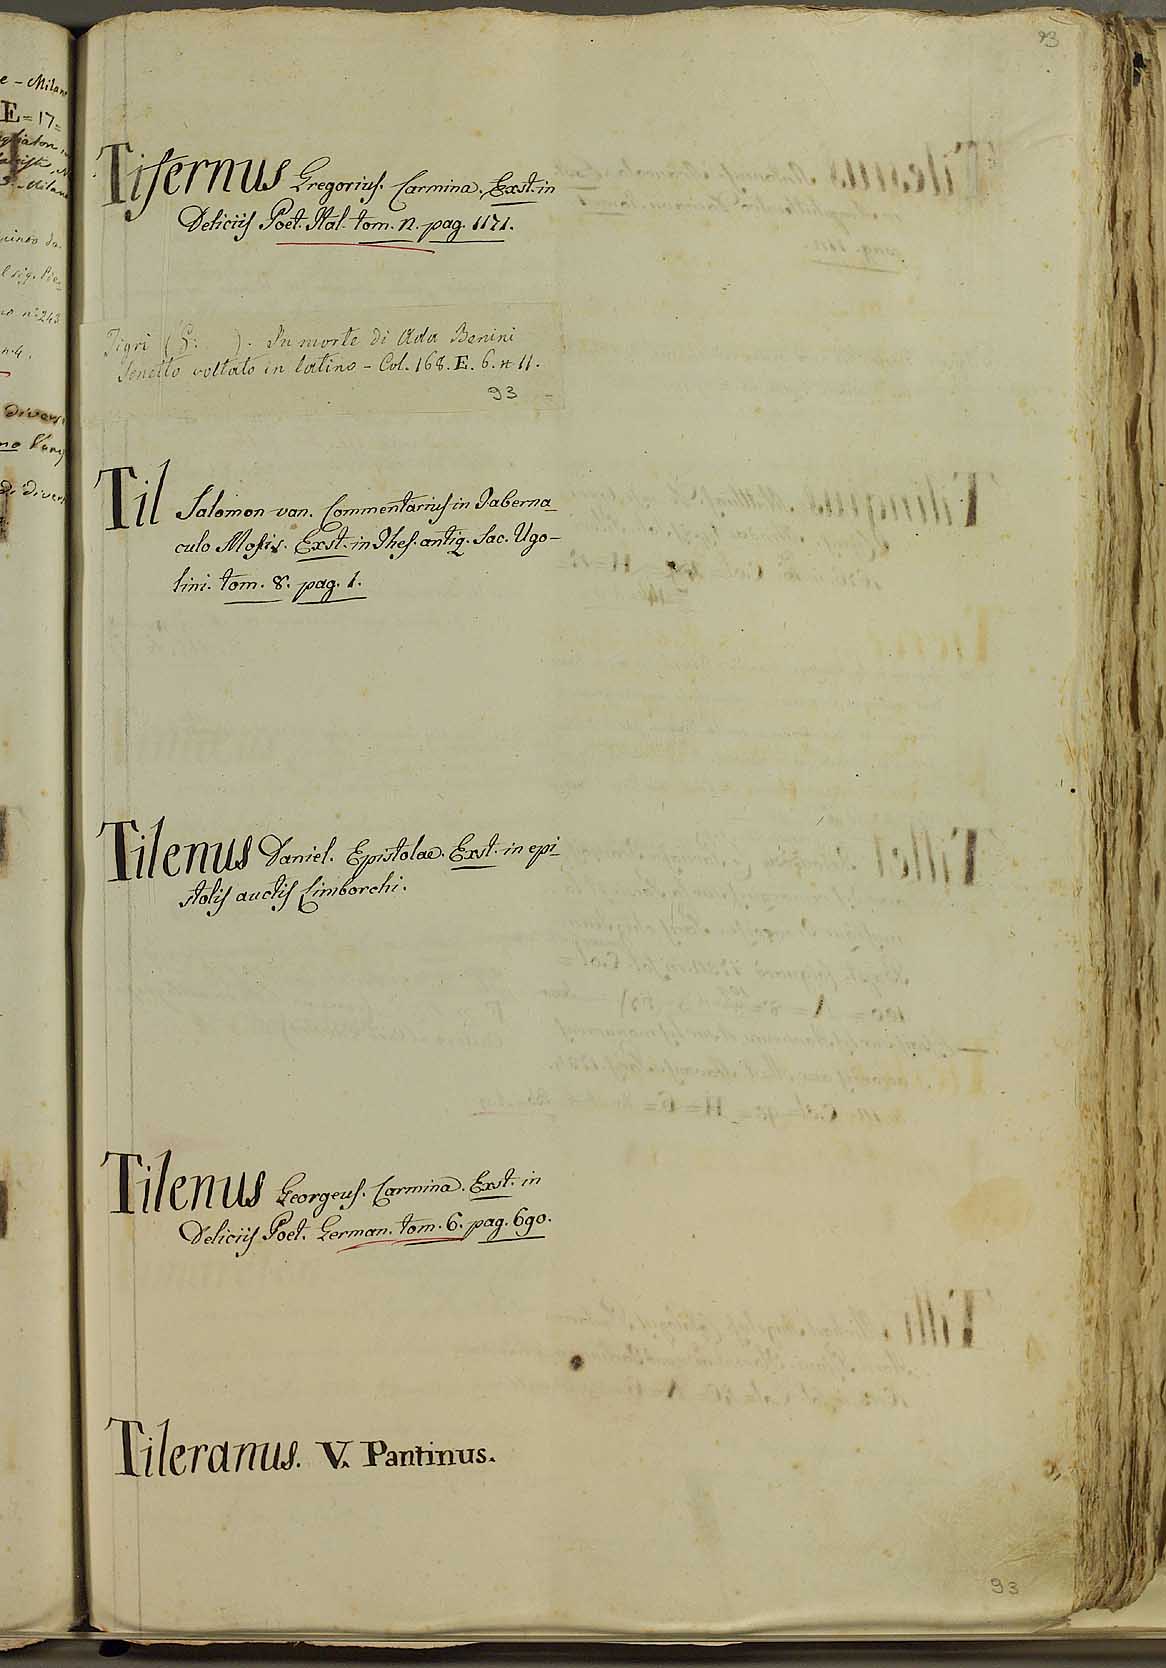 93
Tifernus Gregorius. Carmina. Exst. in
Deliciis Poet. Ital. tom. 2. pag. 1171.
Tigri (G: ). In morte di Ada Benini
Sonetto voltato in latino - Col. 168. E. 6. n 11.
93
Til Salomon van. Commentarius in Taberna-
culo Mosis. Exst. in Thes. antiq. Sac. Ugo-
lini. tom. 8. pag. 1.
Tilenus Daniel. Epistolae. Exst. in epi-
stolis auctis Limborchi.
Tilenus Georgeus. Carmina. Exst. in
Deliciis Poet. German. tom. 6. pag. 690.
Tileranus. V. Pantinus.
93
e - Milano
E=17=
n° 243
n. 4.
di diversi